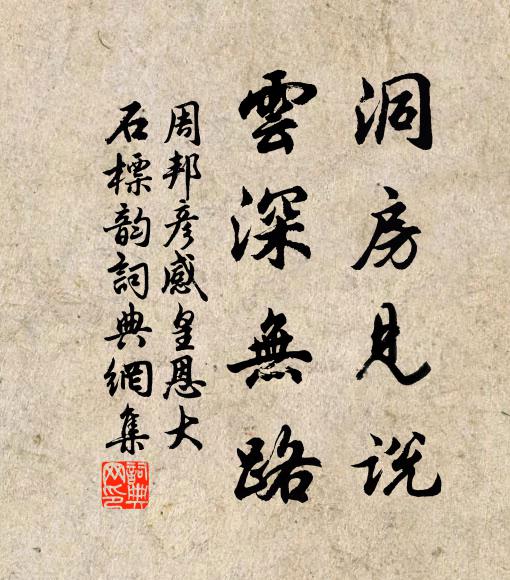 洞房見説
雲深無路
周邦彥感皇恩大
石標韵詞典網集
詞典
网印